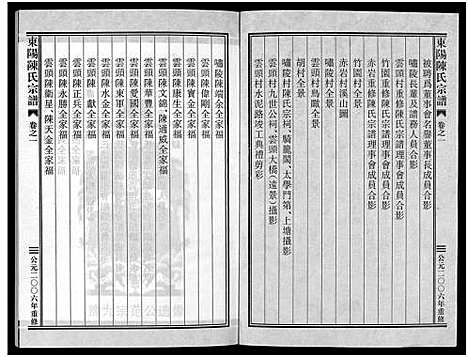 東陽陳氏宗譜
卷之一
公元二〇〇六年重修
被聘爲董事會名譽董事長成員合影
嘯陵長輩及譜務人員合影
雲頭村重修陳氏宗譜理事會成員合影
赤岩重修陳氏宗譜理事會成員合影
竹園村重修陳氏宗譜理事會成員合影
竹園村全景
赤岩村溪山圖
嘯陵村全景
雲頭村鳥瞰全景
胡村全景
嘯陵村陳氏宗祠、騎龍閣、太學門第、上塘攝影
雲頭村九世公祠、雲頭大橋(遠景)攝影
雲頭村水泥路竣工典禮剪彩
嘯陵陳瑞余全家福
雲頭陳偉剛全家福
雲頭陳寶金全家福
雲頭陳康生全家福
雲頭陳文錦、陳通威全家福
雲頭陳華豐全家福
雲頭陳愛國全家福
雲頭陳東軍全家福
雲頭陳水金全家福
雲頭陳獻全家福
雲頭陳正兵全家福
雲頭陳永勝全家福
雲頭陳衛星、陳天金全家福
東陽陳氏宗譜
卷之一
公元二〇〇六年重修